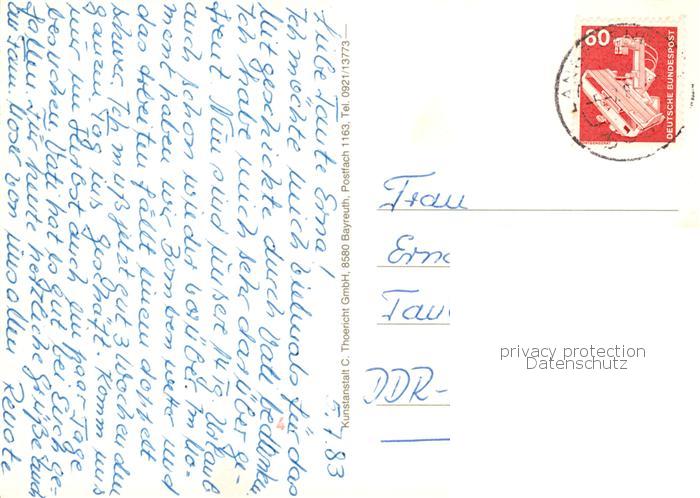 5.7.83
Liebe Tante Erna!
Ich möchte mich vielmals für das
Mitgeschickte durch Vati bedanken.
Ich habe mich sehr darüber ge-
freut. Nun sind unser 14 Tg Urlaub
auch schon wieder vorüber. Im Mo-
ment haben wir Bombenwetter und
das Arbeiten fällt einem doppelt
schwer. Ich muß jetzt gut 3 Wochen den
ganzen Tag ins Geschäft. Komm uns
nur im Herbst auch ein paar Tage
besuchen. Vati hat es gut bei Euch ge-
fallen. Für heute herzliche Grüße auch
von uns allen Renate
Kunstanstalt C. Thoericht GmbH, 8580 Bayreuth, Postfach 1163, Tel. 0921/13773
60
DEUTSCHE BUNDESPOST
Frau
Erna
DDR-
privacy protection
Datenschutz